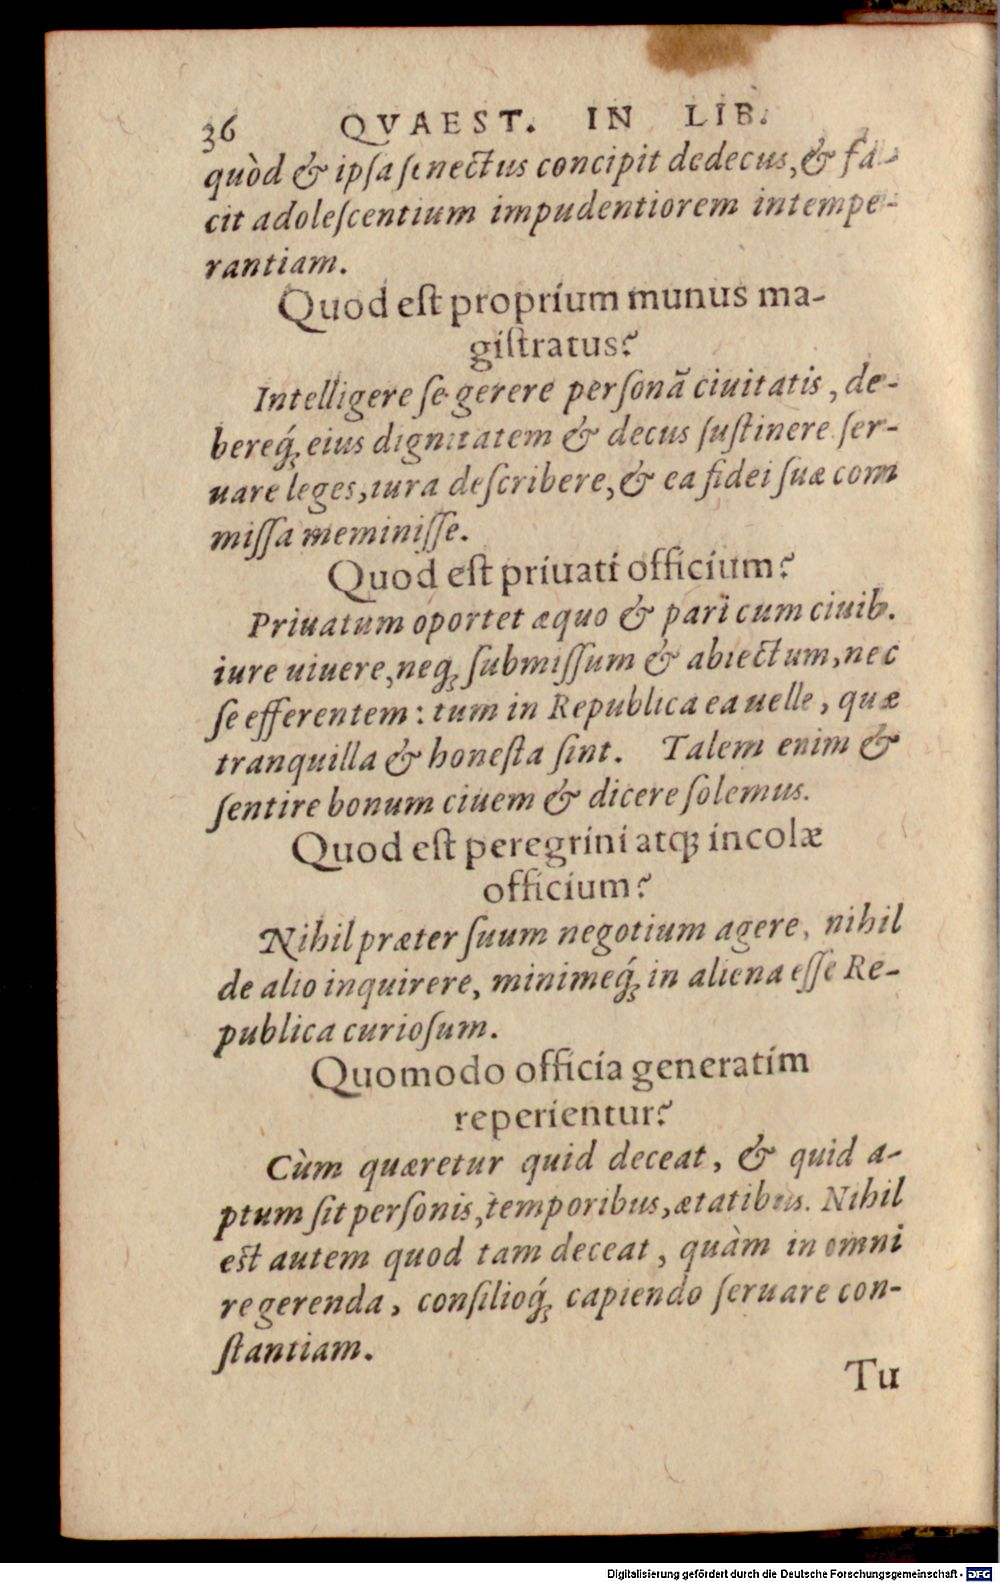 36 QVAEST. IN LIB.
quòd & ipſa ſenectus concipit dedecus, & fa-
cit adoleſcentium impudentiorem intempe-
rantiam.
Quod eſt proprium munus ma-
giſtratus?
Intelligere ſe gerere perſonã ciuitatis, de-
bereq́; eius dignitatem & decus ſuſtinere ſer-
uare leges, iura deſcribere, & ea fidei ſuæ com
miſſa meminiſſe.
Quod eſt priuati officium?
Priuatum oportet æquo & pari cum ciuib.
iure uiuere, neq; ſubmiſſum & abiectum, nec
ſe efferentem: tum in Republica ea uelle, quæ
tranquilla & honeſta ſint. Talem enim &
ſentire bonum ciuem & dicere ſolemus.
Quod eſt peregrini atq; incolæ
officium?
Nihil præter ſuum negotium agere, nihil
de alio inquirere, minimeq́; in aliena eſſe Re-
publica curioſum.
Quomodo officia generatim
reperientur?
Cùm quæretur quid deceat, & quid a-
ptum ſit perſonis, temporibus, ætatibus. Nihil
eſt autem quod tam deceat, quàm in omni
re gerenda, conſilioq́; capiendo ſeruare con-
ſtantiam.
Tu
Digitalisierung gefördert durch die Deutsche Forschungsgemeinschaft - DFG